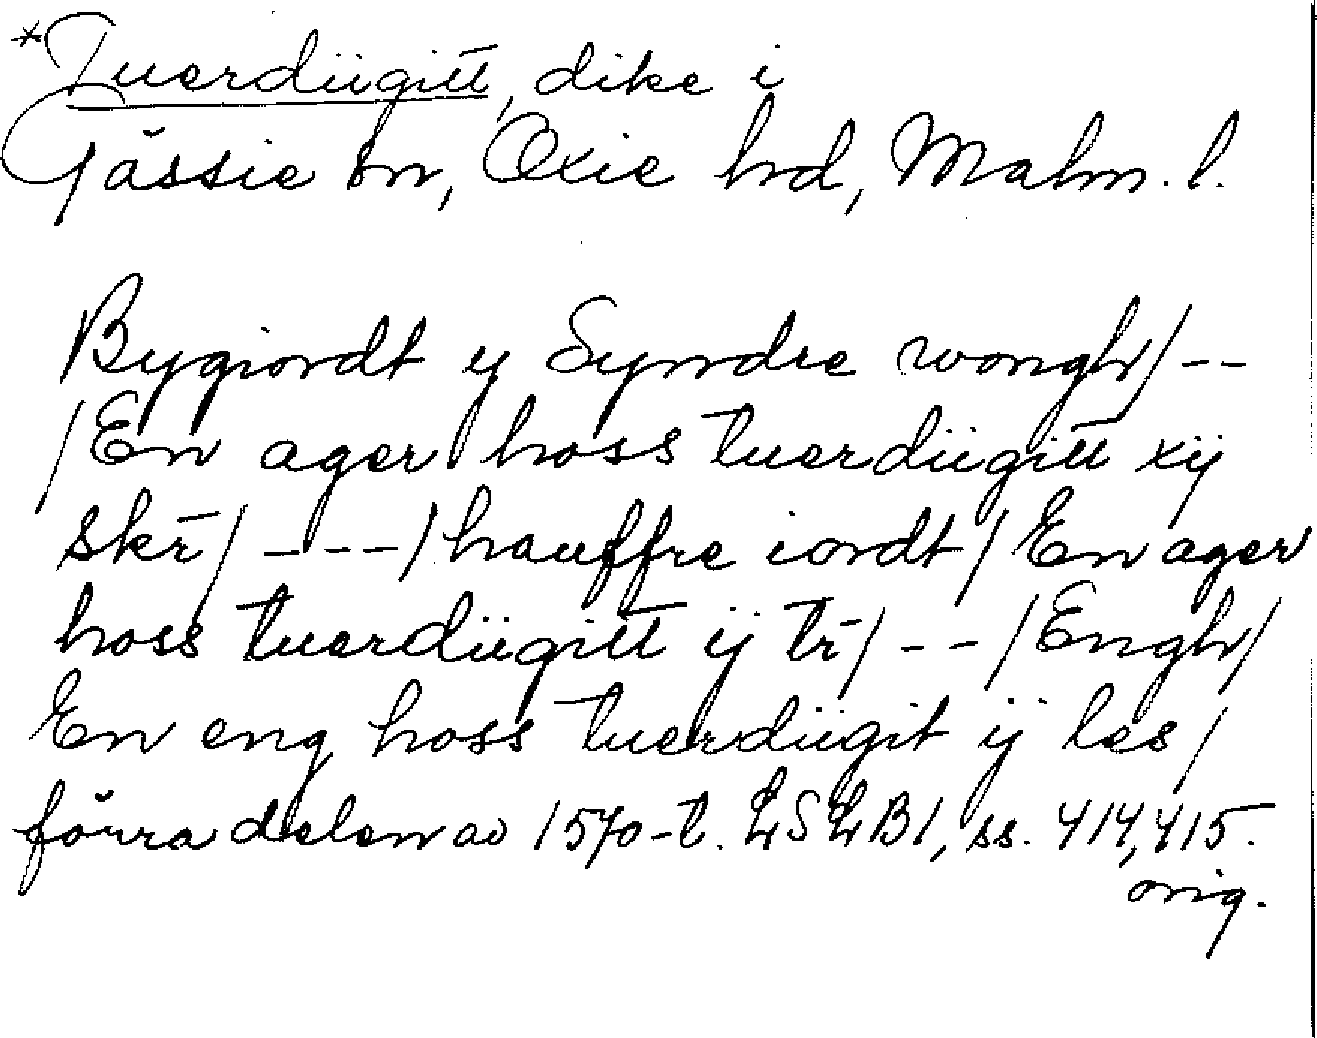 *Tuerdiigitt, dike i
Gässie sn, Oxie hd, Malm. l.
Bygiordt y Syndre wongh/--
/En ager hoss tuerdiigitt xij
skr̄/---/hauffre iordt/En ager
hoss tuerdiigitt ij tr̄/--/Engh/
En eng hoss tuerdiigit ij les/
förra delen av 1570-t. LSLB1, ss. 414, 415.
orig.